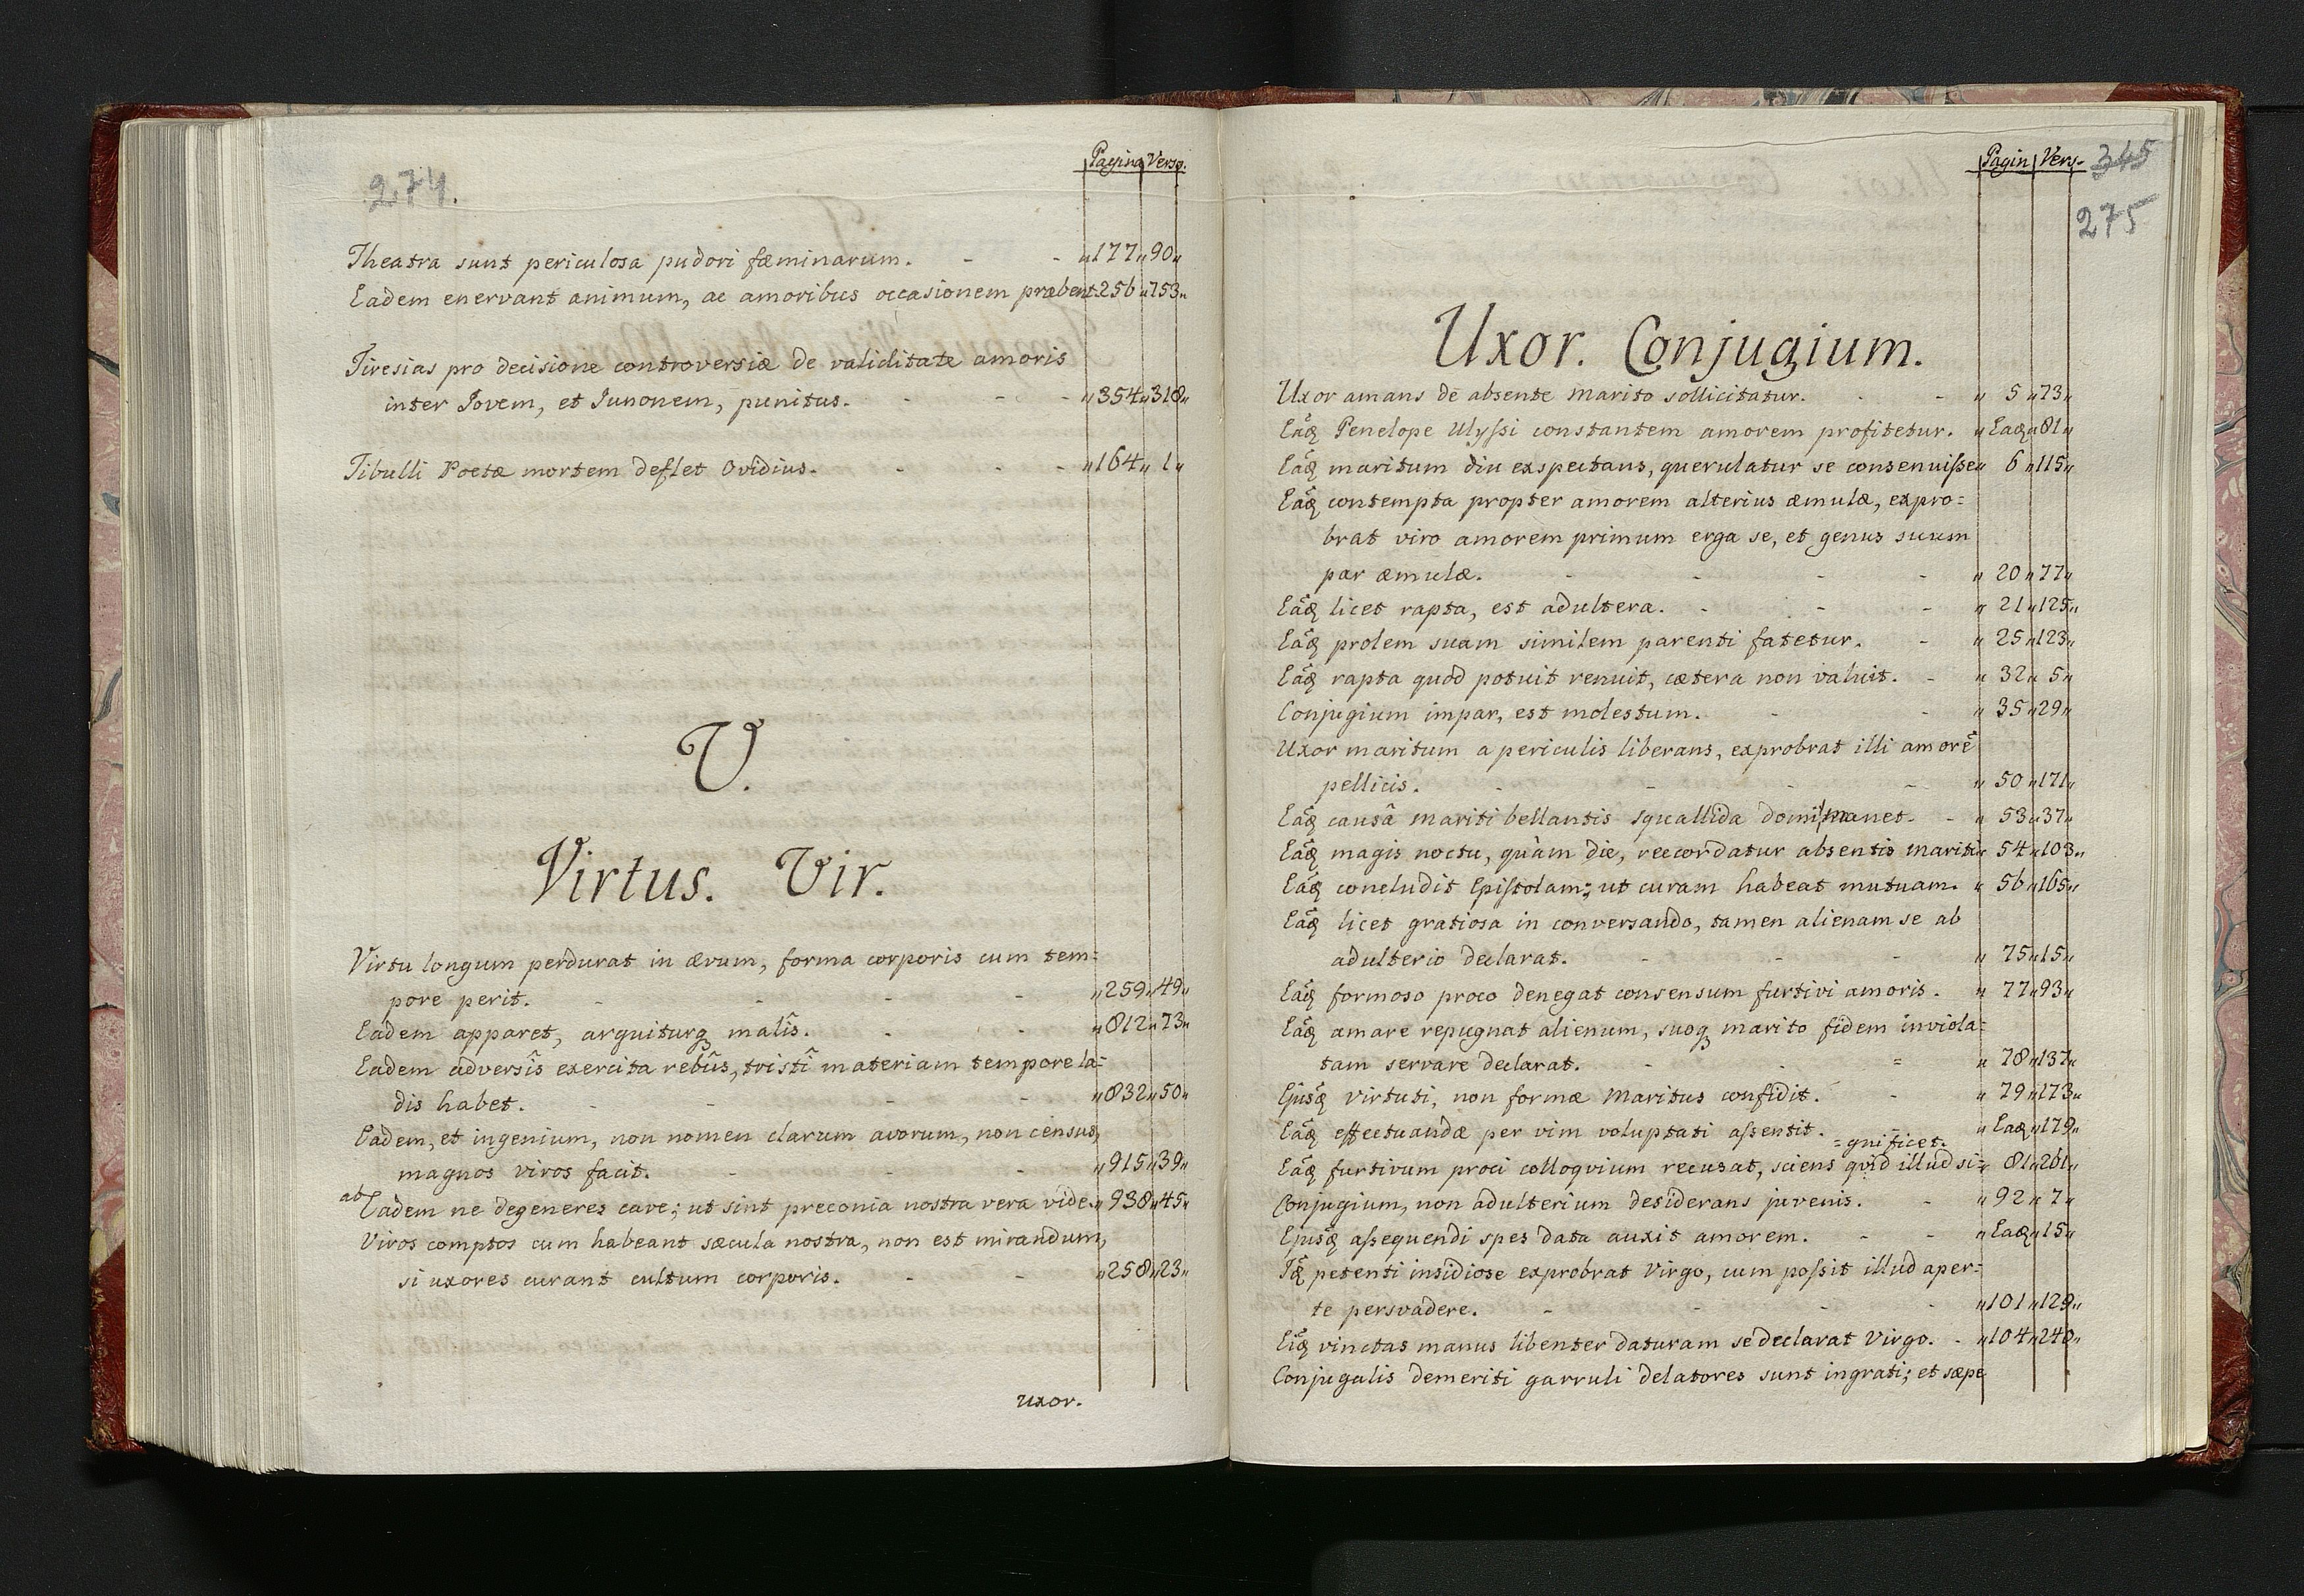 274.
Pagina Verso.
Theatra sunt periculosa pudori fæminarum. - - „177„90„
Eadem enervant animum, ac amoribus occasionem præbent. 256„753„
Tiresias pro decisione controversiæ de validitate amoris
inter Jovem, et Junonem, punitus. - - - „354„318„
Tibulli Poetæ mortem deflet Ovidius. - - - „164„1„
V.
Virtus. Vir.
Virtu longum perdurat in ævum, forma corporis cum tem=
pore perit. - - - - „259„49„
Eadem apparet, arguiturq₃ malîs. - - „812„73„
Eadem adversîs exercita rebûs, tristî materiam tempore la=
dis habet. - - - - „832„50„
Eadem, et ingenium, non nomen clarum avorum, non census,
magnos viros facit. - - - „915„39„
ab Eadem ne degeneres cave; ut sint preconia nostra vera vide. „938„45„
Viros comptos cum habeant sæcula nostra, non est mirandum,
si uxores curant cultum corporis. - - „258„23„
uxor.
Pagin Vers. 345
275
Uxor. Conjugium.
Uxor amans de absente marito sollicitatur. - - „ 5„73„
Eãq Penelope Ulyssi constantem amorem profitetur. „Eaq„81„
Eãq maritum diu exspectans, querulatur se consenuisse „ 6„115„
Eãq contempta propter amorem alterius æmulæ, expro=
brat viro amorem primum erga se, et genus suum
par æmulæ. - - - - „ 20„77„
Eãq licet rapta, est adultera. - - - „ 21„125„
Eãq prolem suam similem parenti fatetur. - „ 25„123„
Eãq rapta quod potuit renuit, cætera non valuit. - „ 32„5„
Conjugium impar, est molestum. - - „ 35„29„
Uxor maritum a periculis liberans, exprobrat illi amorẽ
pellicis. - - - „ 50„171„
Eãq causâ mariti bellantis squallida domi manet. - „ 53„37„
Eãq magis noctu, quàm die, reecordatur absentis mariti „ 54„103„
Eãq concludit Epistolam; ut curam habeat mutuam. „ 56„165„
Eãq licet gratiosa in conversando, tamen alienam se ab
adulterio declarat. - - - „ 75„15„
Eãq formoso proco denegat consensum furtivi amoris. „ 77„93„
Eãq amare repugnat alienum, suoq₃ marito fidem inviola=
tam servare declarat. - - = „ 78„137„
Ejusq virtuti, non formæ maritus confidit. - „ 79„173„
Eãq effectuandæ per vim voluptati assentit. „Eaq„179„
=gnificet.
Eãq furtivum proci colloqvium recusat, sciens qvid illud si= 81„261„
Conjugium, non adulterium desiderans juvenis. - „92„7„
Ejusq assequendi spes data auxit amorem. - - „Eaq„15„
Iq petenti insidiose exprobrat Virgo, cum possit illud aper=
te persvadere. - - - - „101„129„
Eiq vinctas manus libenter daturam se declarat Virgo. - „104„240„
Conjugalis demeriti garruli delatores sunt ingrati; et sæpe